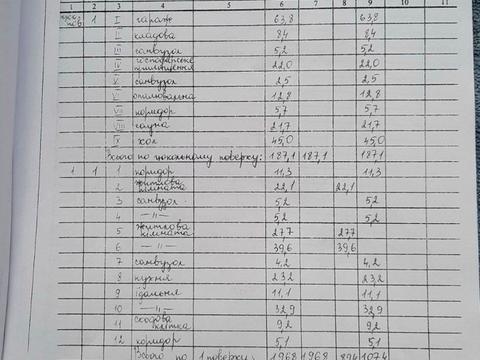 1 2 3 4 5 6 7 8 9 10 11
1 I гараж 63,8 63,8
II кладова 8,4 8,4
III санвузол 5,2 5,2
IV господарське приміщення 22,0 22,0
V санвузол 2,5 2,5
VI опалювальна 12,8 12,8
VII коридор 5,7 5,7
VIII сауна 21,7 21,7
IX хол 45,0 45,0
Всього по цокольному поверху: 187,1 187,1 187,1
1 1 1 коридор 11,3 11,3
2 житлова кімната 22,1 22,1
3 санвузол 5,2 5,2
4 —"— 5,2 5,2
5 житлова кімната 27,7 27,7
6 —"— 39,6 39,6
7 санвузол 4,2 4,2
8 кухня 23,2 23,2
9 їдальня 11,1 11,1
10 —"— 32,9 32,9
11 сходова клітка 9,2 9,2
12 коридор 5,1 5,1
Всього по 1 поверху: 196,8 196,8 89,4 107,4